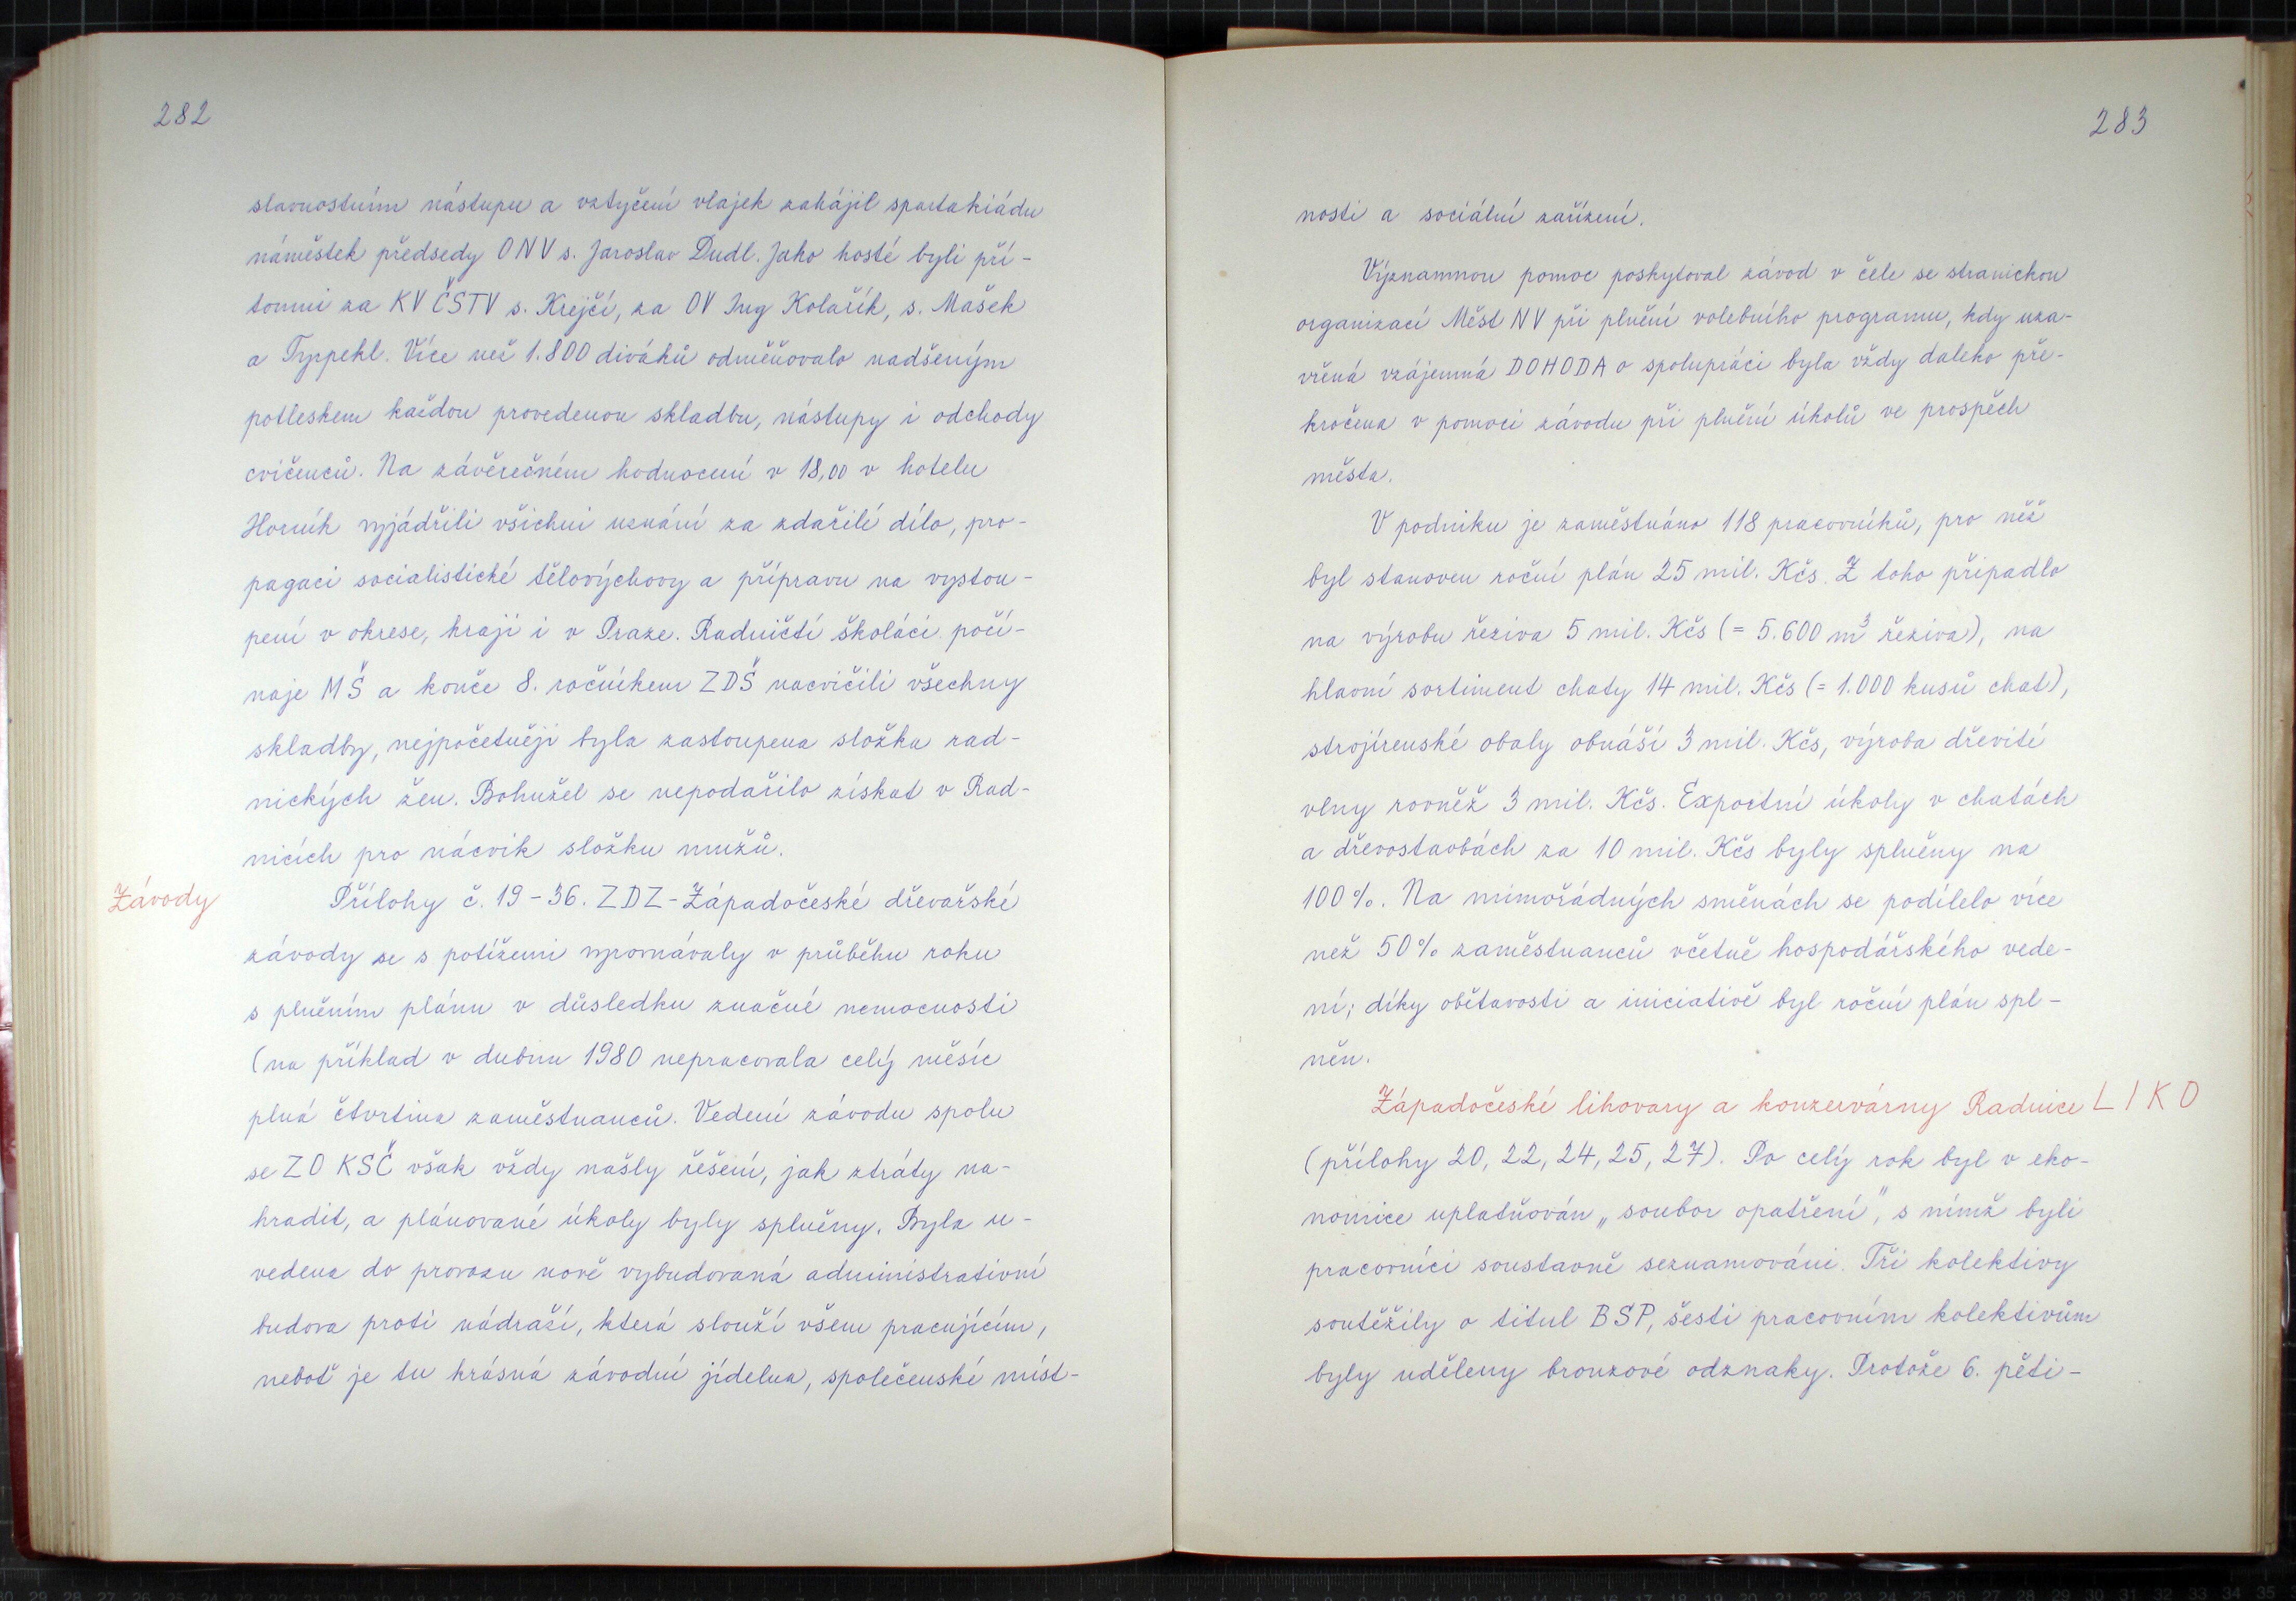 282
slavnostním nástupu a vztyčení vlajek zahájil spartakiádu
náměstek předsedy ONV s. Jaroslav Dudl. Jako hosté byli pří-
tomni za KV ČSTV s. Krejčí, za OV Ing Kolařík, s. Mašek
a Tyrpekl. Více než 1.800 diváků odměňovalo nadšeným
potleskem každou provedenou skladbu, nástupy i odchody
cvičenců. Na závěrečném hodnocení v 18,00 v hotelu
Horník vyjádřili všichni uznání za zdařilé dílo, pro-
pagaci socialistické tělovýchovy a přípravu na vystou-
pení v okrese, kraji i v Praze. Radničtí školáci počí-
naje MŠ a konče 8. ročníkem ZDŠ nacvičili všechny
skladby, nejpočetněji byla zastoupena složka rad-
nických žen. Bohužel se nepodařilo získat v Rad-
nicích pro nácvik složku mužů.
Závody
Přílohy č. 19-36. ZDZ-Západočeské dřevařské
závody se s potížemi vyrovnávaly v průběhu roku
s plněním plánu v důsledku značné nemocnosti
(na příklad v dubnu 1980 nepracovala celý měsíc
plná čtvrtina zaměstnanců. Vedení závodu spolu
se ZO KSČ však vždy našly řešení, jak ztráty na-
hradit, a plánované úkoly byly splněny. Byla u-
vedena do provozu nově vybudovaná administrativní
budova proti nádraží, která slouží všem pracujícím,
neboť je tu krásná závodní jídelna, společenské míst-
283
nosti a sociální zařízení.
Významnou pomoc poskytoval závod v čele se stranickou
organizací Měst NV při plnění volebního programu, kdy uza-
vřená vzájemná DOHODA o spolupráci byla vždy daleko pře-
kročena v pomoci závodu při plnění úkolů ve prospěch
města.
V podniku je zaměstnáno 118 pracovníků, pro něž
byl stanoven roční plán 25 mil. Kčs. Z toho připadlo
na výrobu řeziva 5 mil. Kčs (= 5.600 m³ řeziva), na
hlavní sortiment chaty 14 mil. Kčs (= 1.000 kusů chat),
strojírenské obaly obnáší 3 mil. Kčs, výroba dřevité
vlny rovněž 3 mil. Kčs. Exportní úkoly v chatách
a dřevostavbách za 10 mil. Kčs byly splněny na
100%. Na mimořádných směnách se podílelo více
než 50% zaměstnanců včetně hospodářského vede-
ní; díky obětavosti a iniciativě byl roční plán spl-
něn.
Západočeské lihovary a konzervárny Radnice LIKO
(přílohy 20, 22, 24, 25, 27). Po celý rok byl v eko-
nomice uplatňován „soubor opatření", s nímž byli
pracovníci soustavně seznamováni. Tři kolektivy
soutěžily o titul BSP, šesti pracovním kolektivům
byly uděleny bronzové odznaky. Protože 6. pěti-